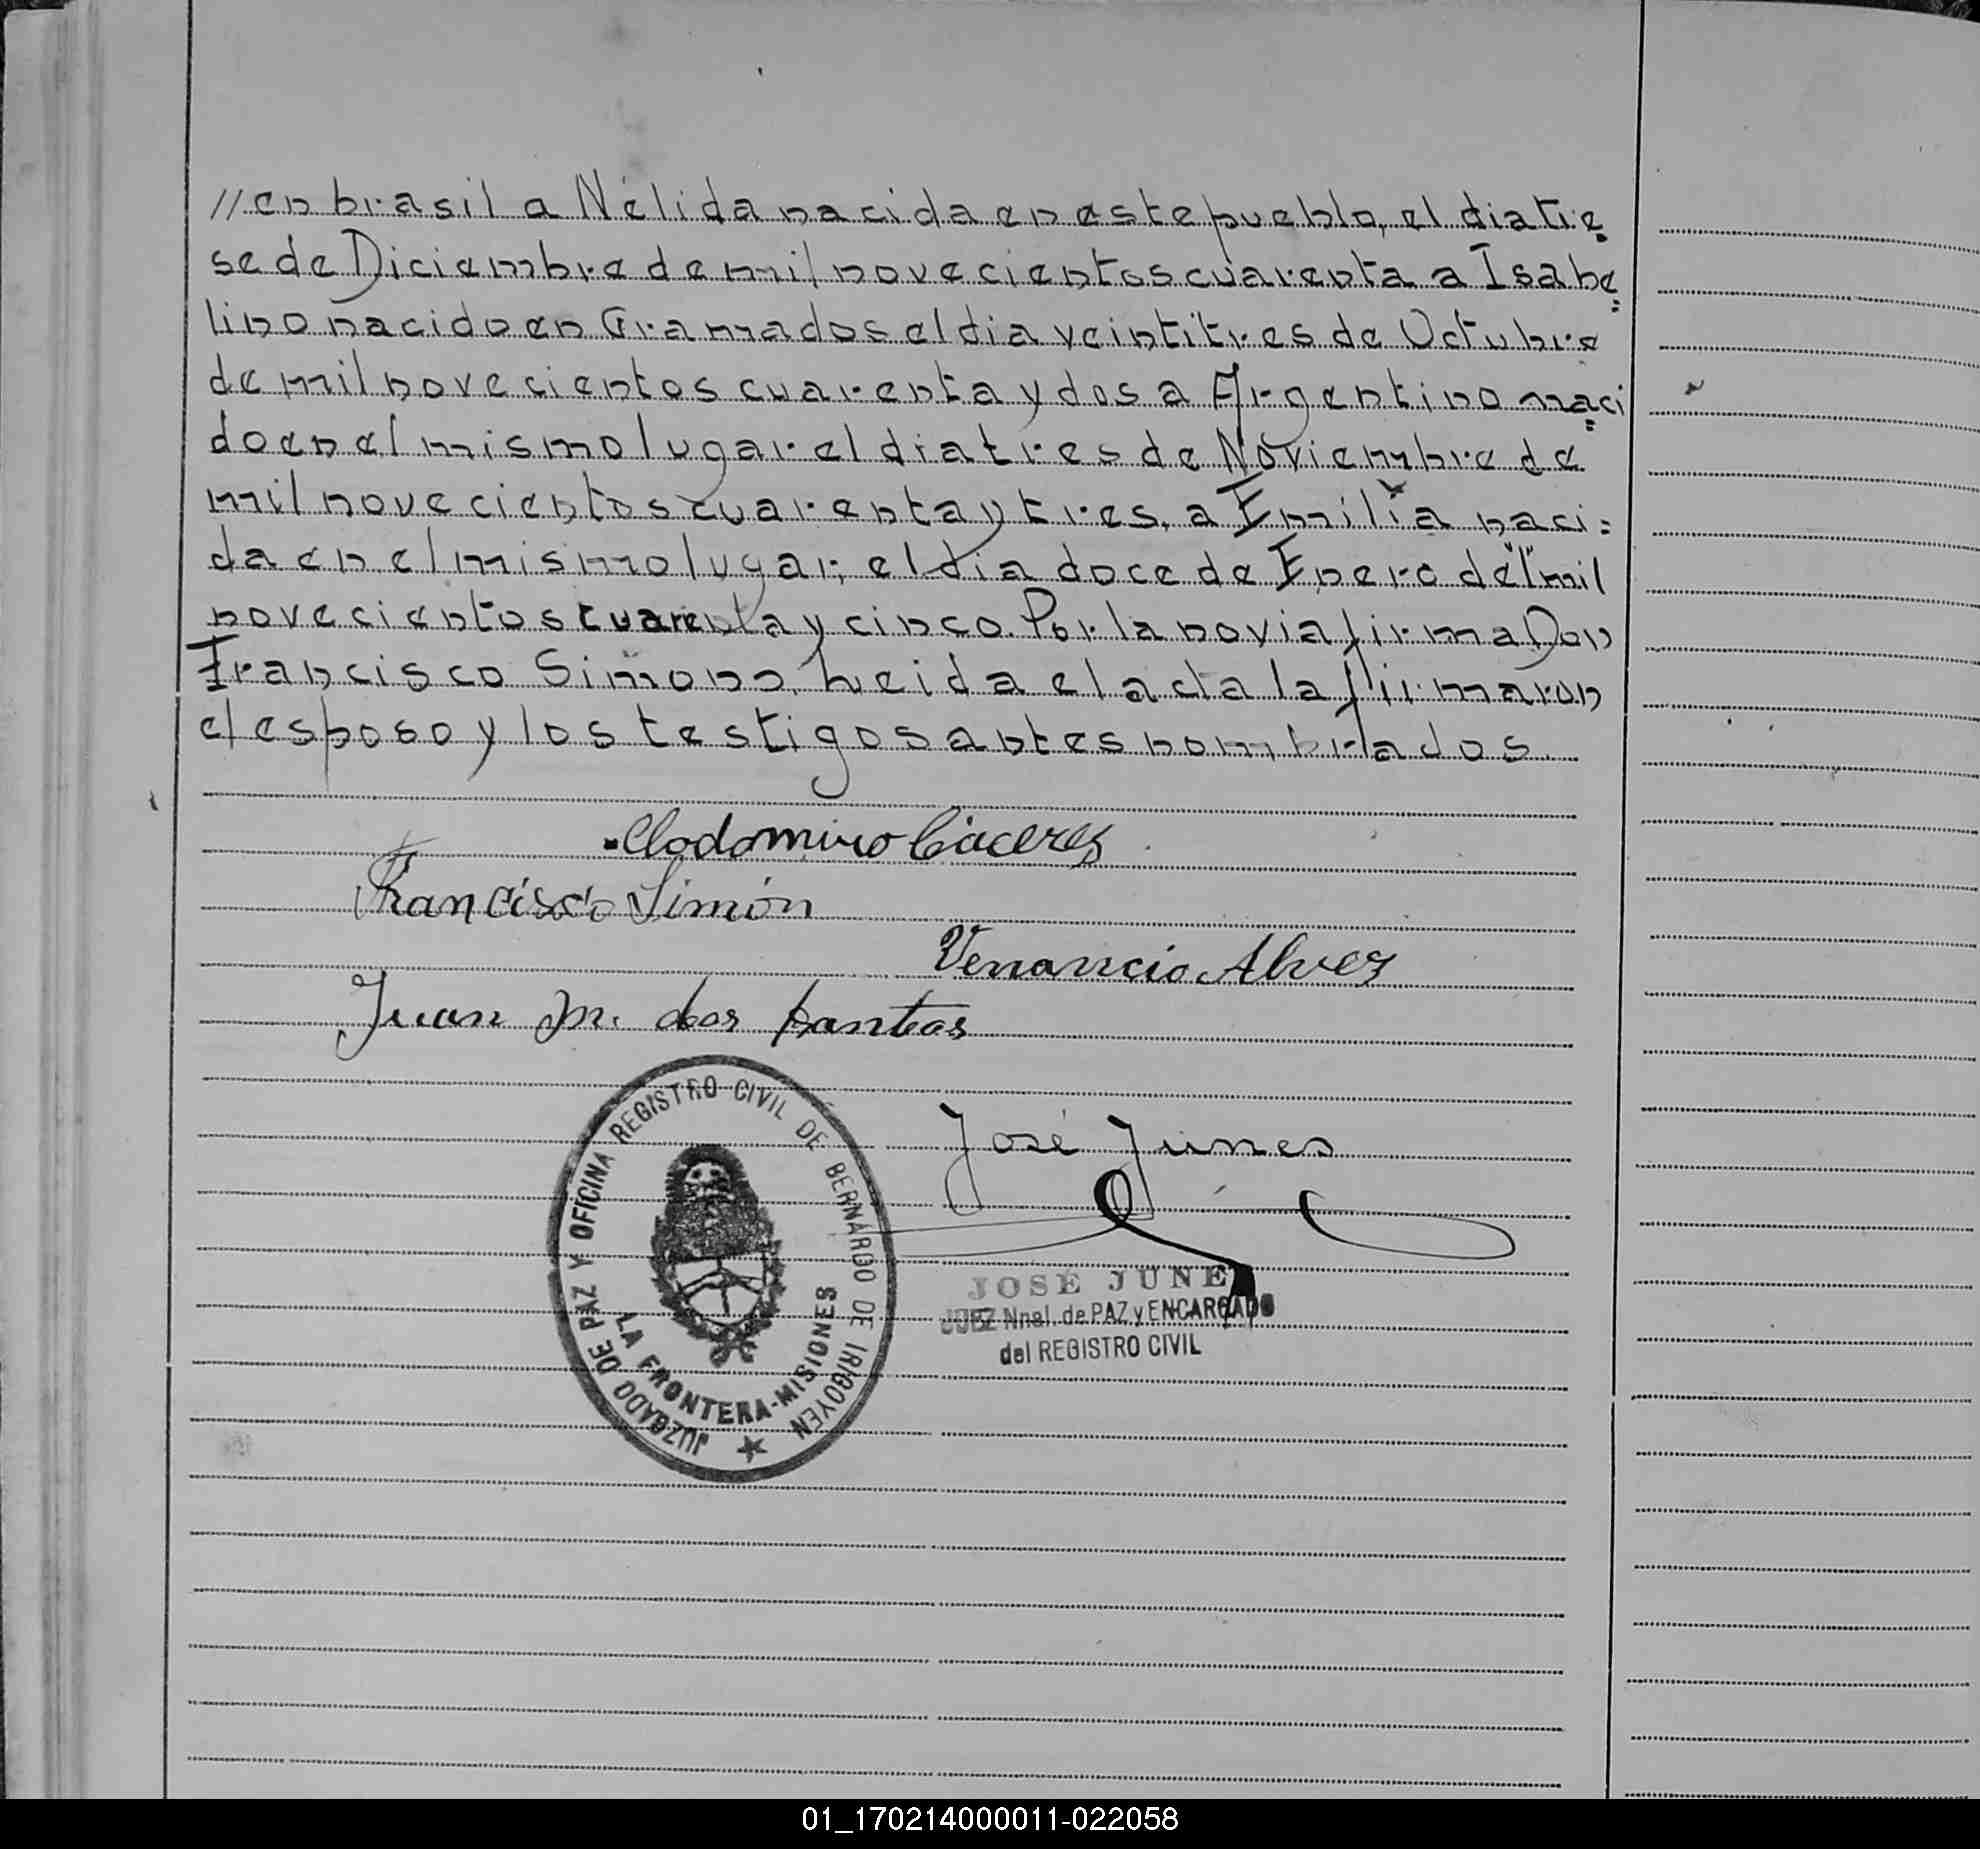 // en brasil a Nélida nacida en este pueblo, el dia tre
se de Diciembre de mil novecientos cuarenta a Isabe
lino nacido en Gramados el dia veintitres de Octubre
de mil novecientos cuarenta y dos a Argentino naci
do en el mismo lugar el dia tres de Noviembre de
mil novecientos cuarenta y tres, a Emilia naci=
da en el mismo lugar, el dia doce de Enero de mil
novecientos cuarenta y cinco. Por la novia firma Don
Francisco Simono, Leida el acta la firmaron
el esposo y los testigos antes nombrados.
Clodomiro Cáceres
Francisco Simón
Venancio Alvez
Juan M. dos Santos
José Junes
JUZGADO DE PAZ Y OFICINA REGISTRO CIVIL DE BERNARDO DE IRIGOYEN
LA FRONTERA-MISIONES
JOSÉ JUNE
JUEZ Nnal. de PAZ y ENCARGADO
del REGISTRO CIVIL
01_170214000011-022058